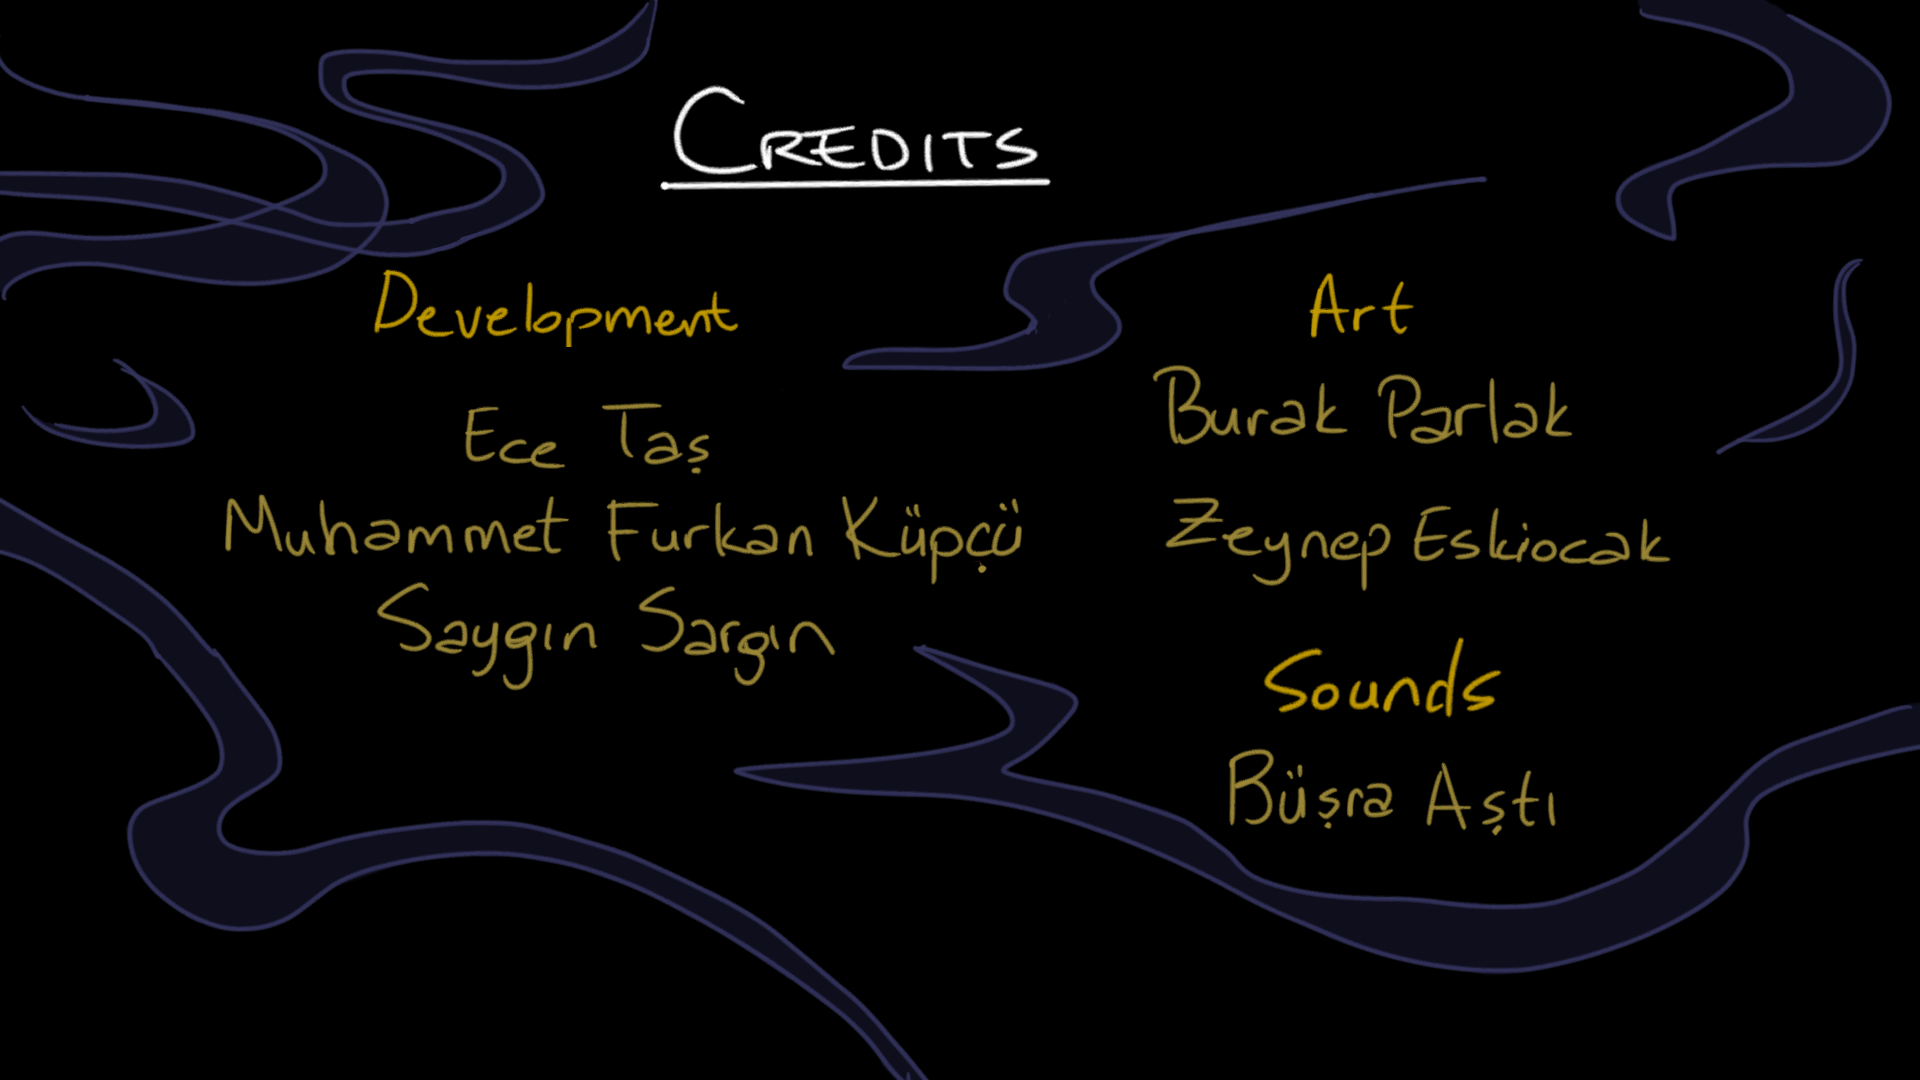 CREDITS
Development
Ece Taş
Muhammet Furkan Küpçü
Saygın Sargın
Art
Burak Parlak
Zeynep Eskiocak
Sounds
Büşra Aştı